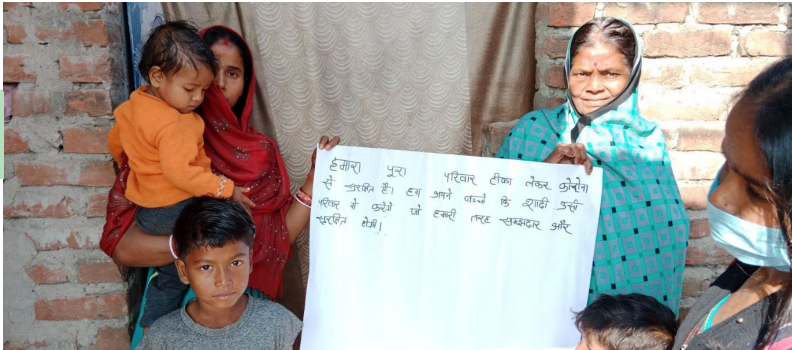 हमारा पूरा परिवार टीका लेकर कोरोना
से सुरक्षित है। हम अपने बच्चों कि शादी उसी
परिवार में करेंगे जो हमारी तरह समझदार और
सुरक्षित होगी।